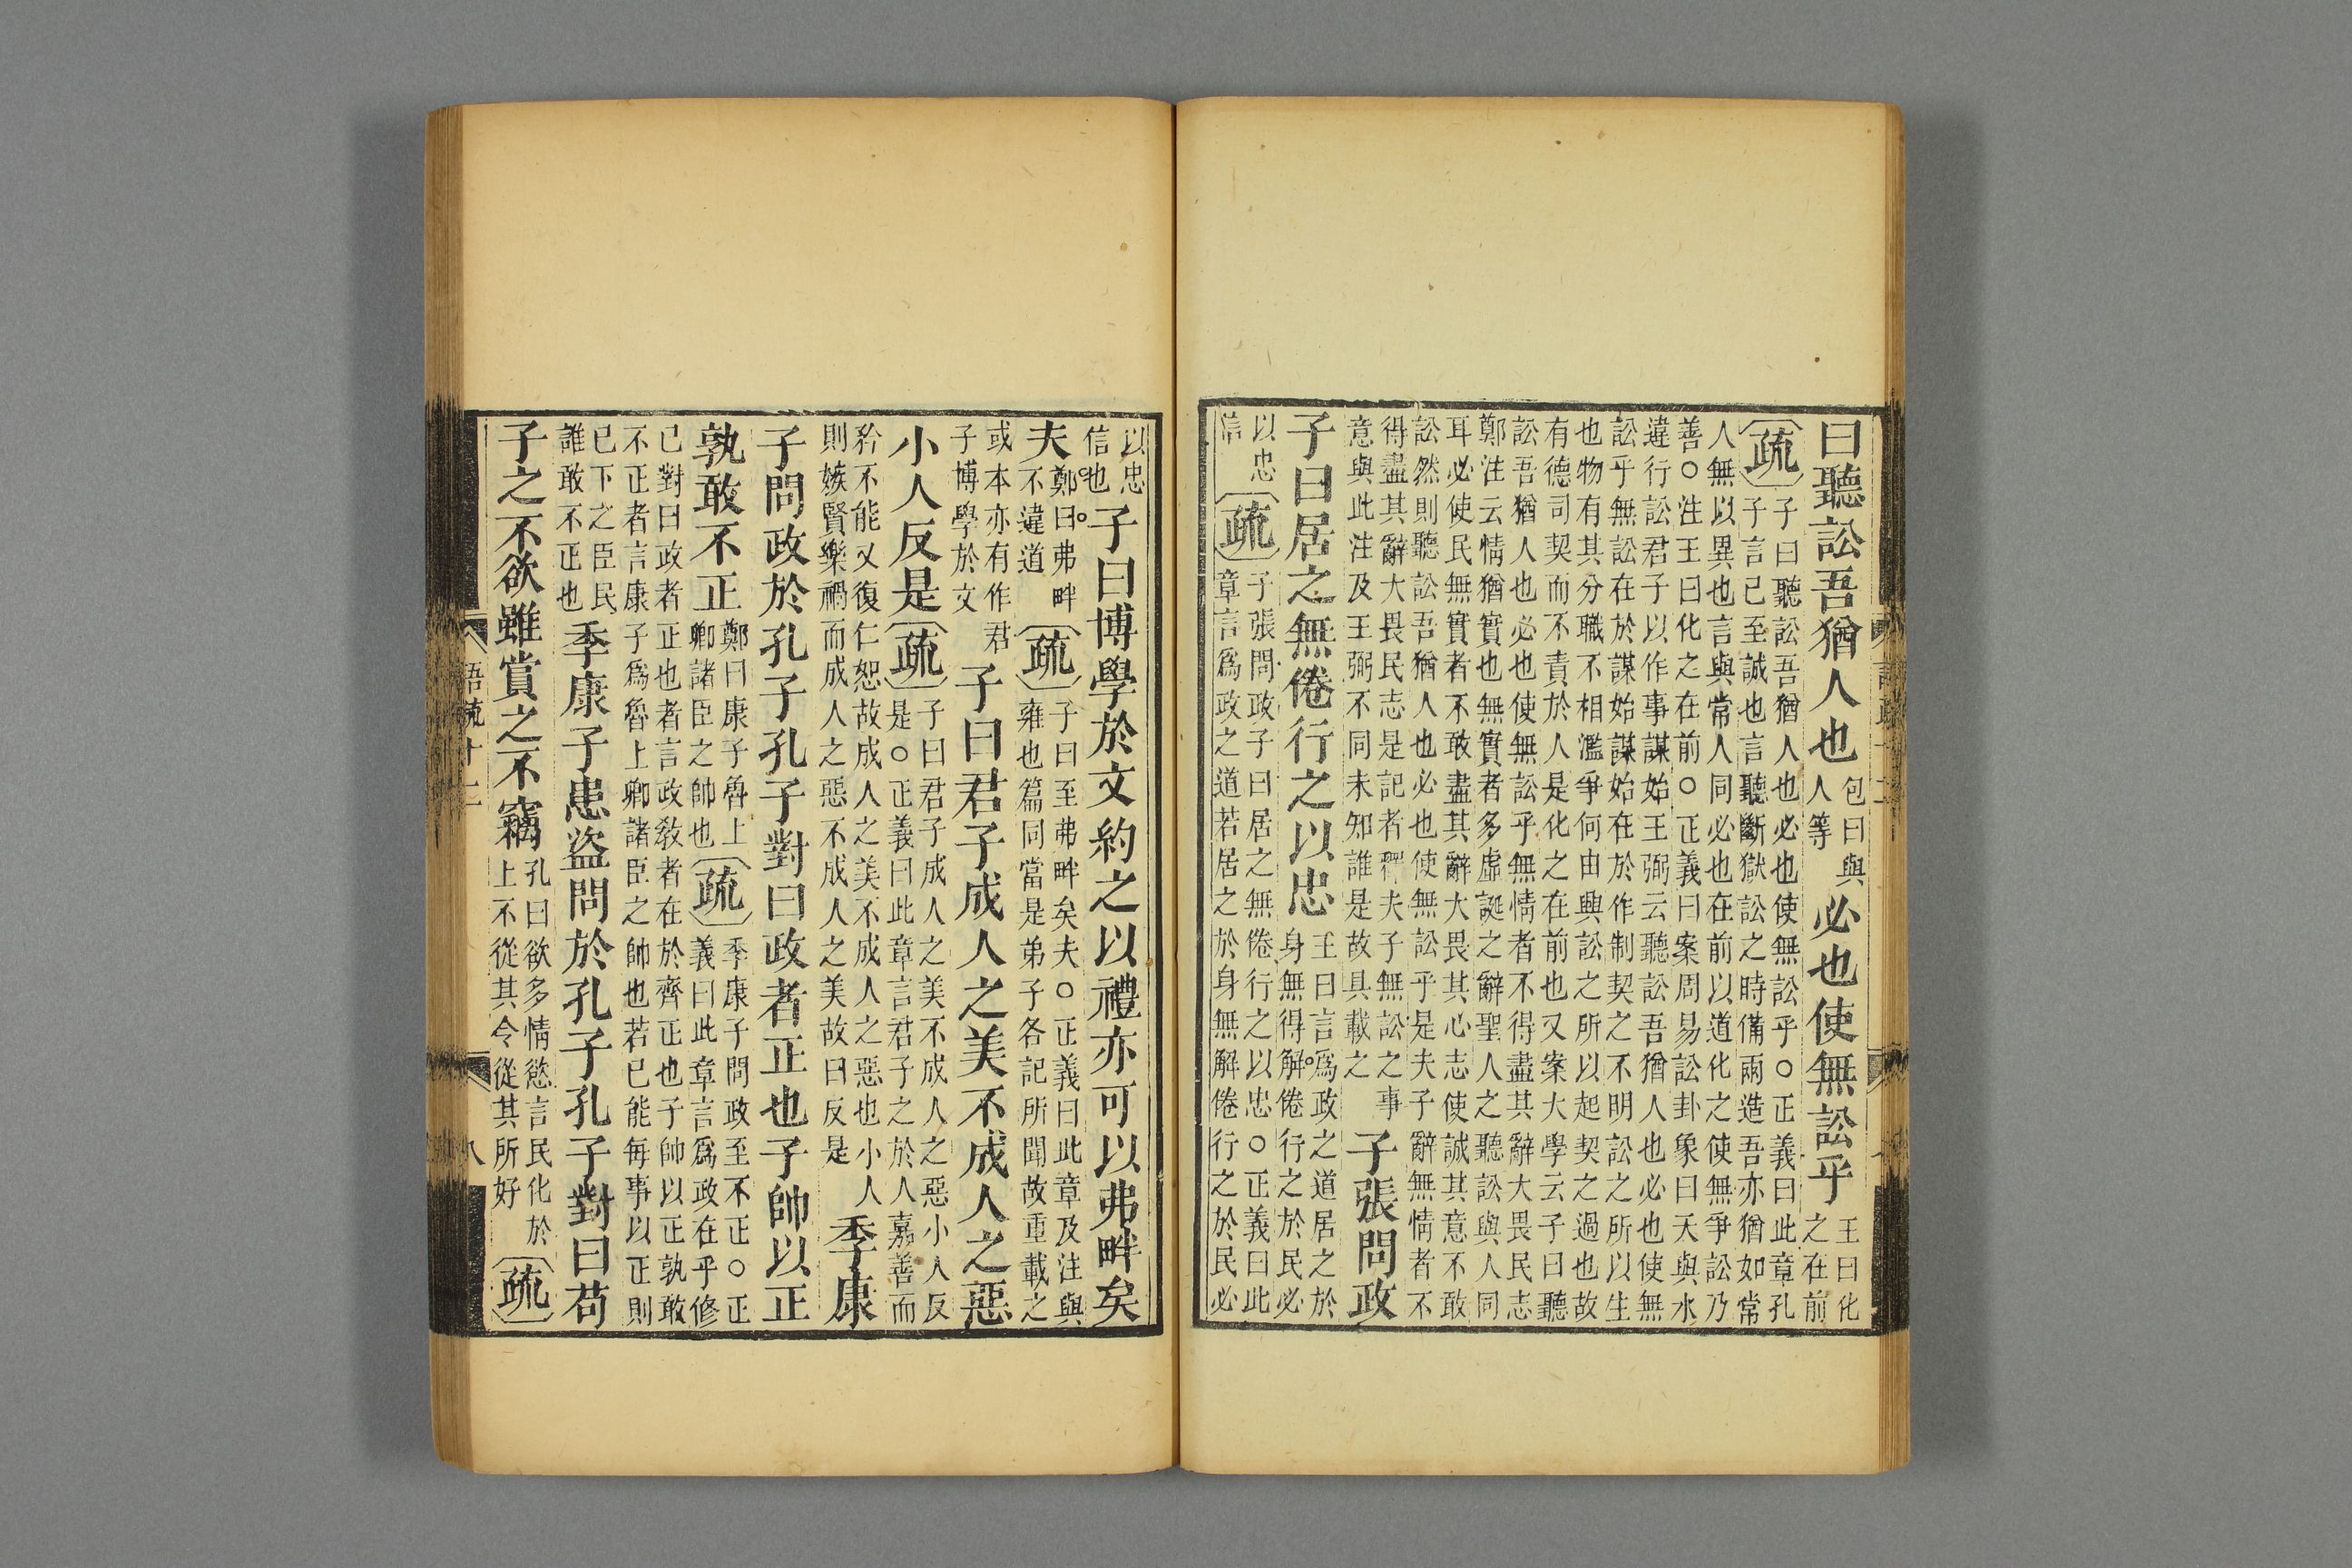 曰聽訟吾猶人也包曰與人等必也使無訟乎王曰化之在前
疏子曰聽訟吾猶人也必也使無訟乎○正義曰此章孔
子言己至誠也言聽斷獄訟之時備兩造吾亦猶如常
人無以異也言與常人同必也在前以道化之使無爭訟乃
善○注王曰化之在前○正義曰案周易訟卦象曰天與水
違行訟君子以作事謀始王弼云聽訟吾猶人也必也使無
訟乎無訟在於謀始謀始在於作制契之不明訟之所以生
也物有其分職不相濫爭何由興訟之所以起契之過也故
有德司契而不責於人是化之在前也又案大學云子曰聽
訟吾猶人也必也使無訟乎無情者不得盡其辭大畏民志
鄭注云情猶實也無實者多虛誕之辭聖人之聽訟與人同
耳必使民無實者不敢盡其辭大畏其心志使誠其意不敢
訟然則聽訟吾猶人也必也使無訟乎是夫子辭無情者不
得盡其辭大畏民志是記者釋夫子無訟之事
意與此注及王弼不同未知誰是故具載之子張問政
子曰居之無倦行之以忠王曰言爲政之道居之於身無得解倦行之於民必
以忠信疏子張問政子曰居之無倦行之以忠○正義曰此
章言爲政之道若居之於身無解倦行之於民必
以忠信也子曰博學於文約之以禮亦可以弗畔矣
夫鄭曰弗畔不違道疏子曰至弗畔矣夫○正義曰此章及注與
雍也篇同當是弟子各記所聞故重載之
或本亦有作君子博學於文子曰君子成人之美不成人之惡
小人反是疏子曰君子成人之美不成人之惡小人反
是○正義曰此章言君子之於人嘉善而
矜不能又復仁恕故成人之美不成人之惡也小人
則嫉賢樂禍而成人之惡不成人之美故曰反是季康
子問政於孔子孔子對曰政者正也子帥以正
孰敢不正鄭曰康子魯上卿諸臣之帥也疏季康子問政至不正○正
義曰此章言爲政在乎修
己對曰政者正也者言政教者在於齊正也子帥以正孰敢
不正者言康子爲魯上卿諸臣之帥也若己能每事以正則
已下之臣民誰敢不正也季康子患盜問於孔子孔子對曰苟
子之不欲雖賞之不竊孔曰欲多情慾言民化於上不從其令從其所好疏
語疏十二
八